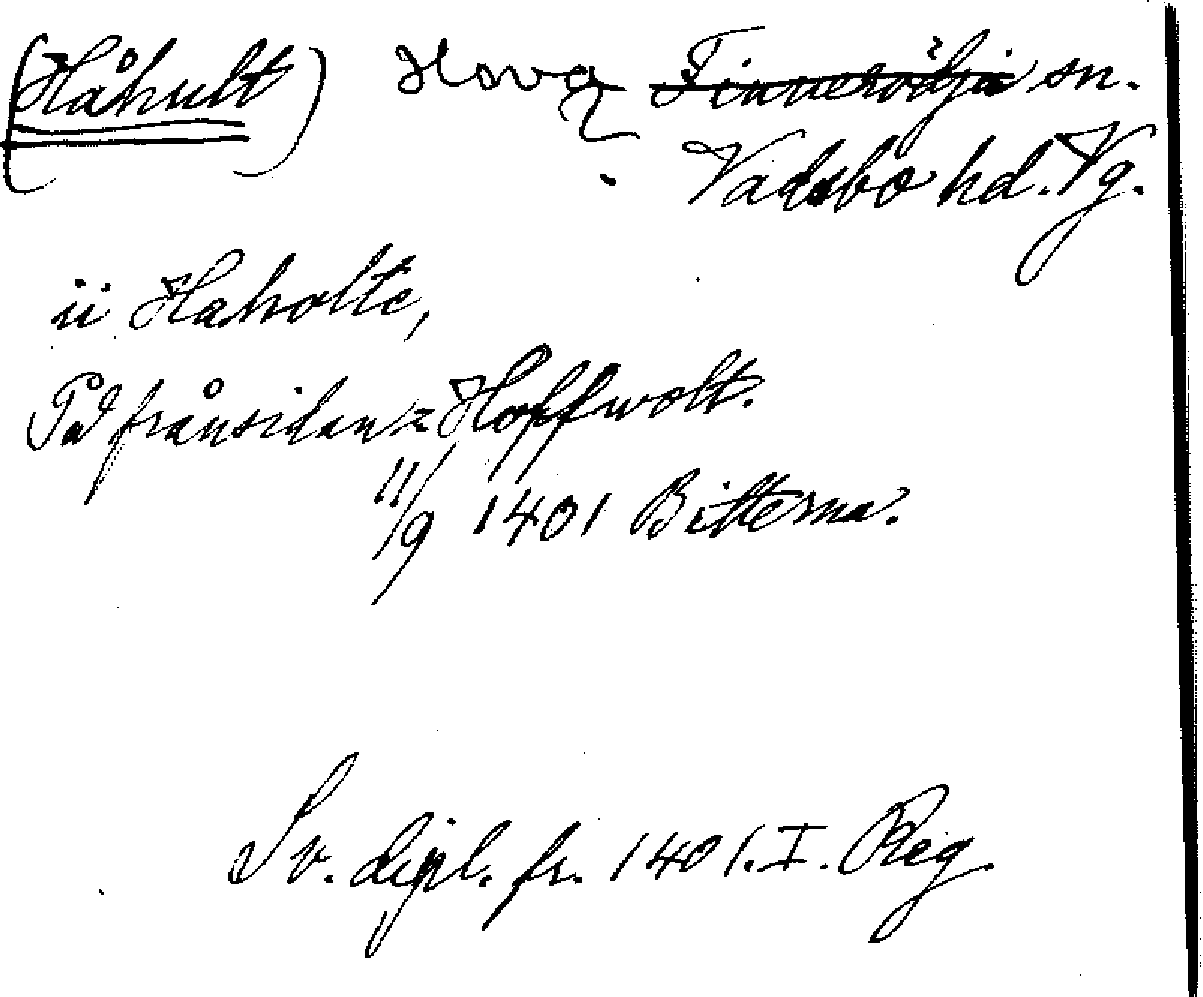 (Håhult) Hova Finnerödja sn.
Vadsbo hd. Vg.
ii Haholte,
På frånsidan = Hoffwolt.
11/9 1401 Bitterna.
Sv. dipl. fr. 1401. I. Reg.